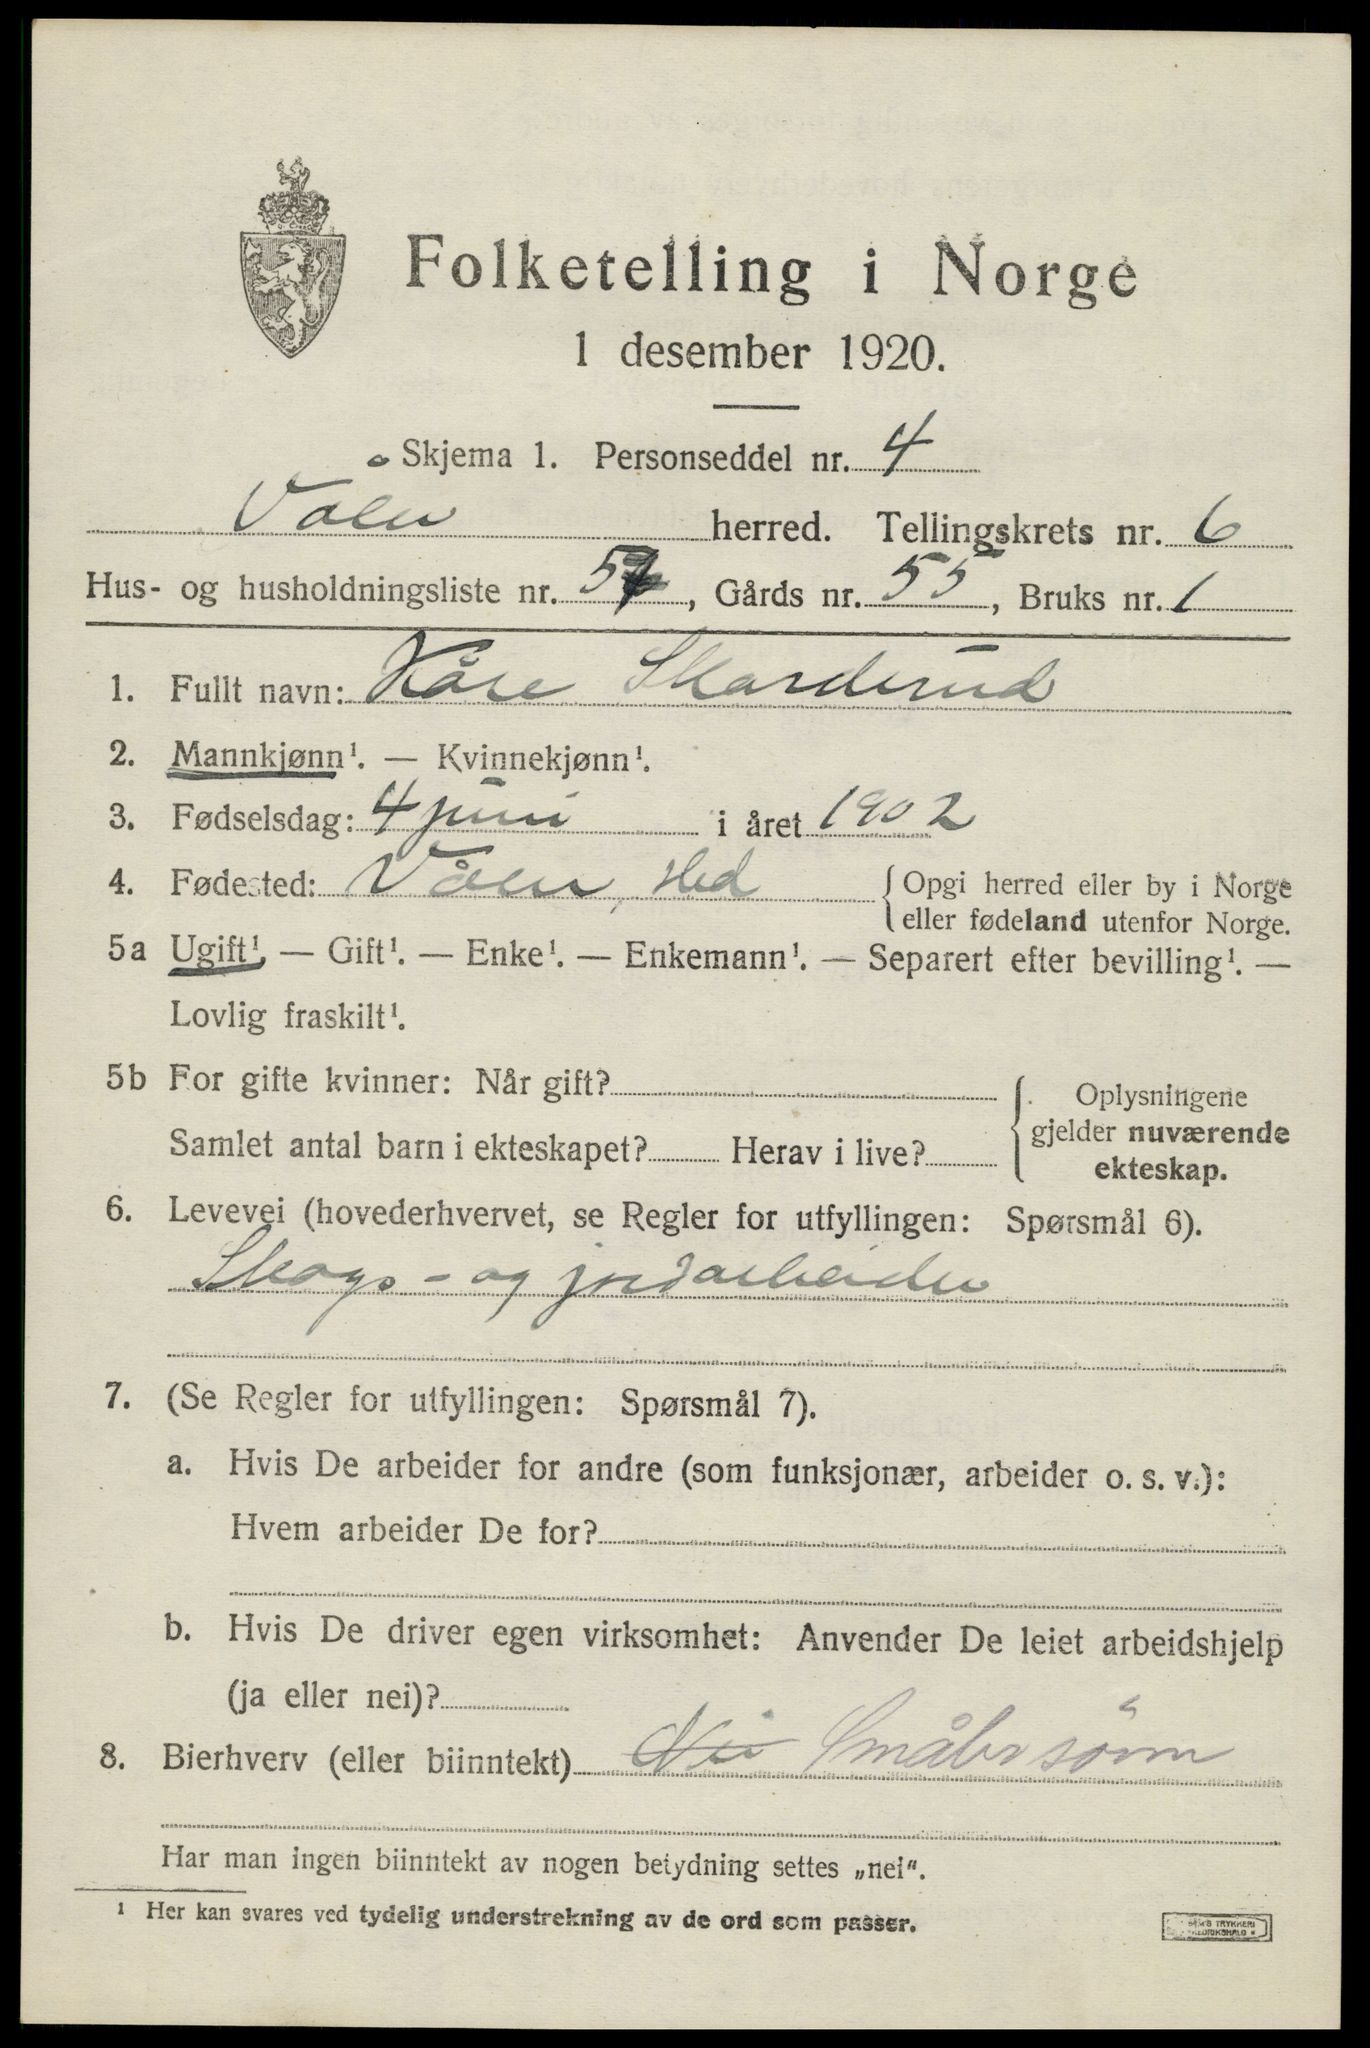 Folketelling i Norge
1 desember 1920.
Skjema 1. Personseddel nr. 4
Våler herred. Tellingskrets nr. 6
Hus- og husholdningsliste nr. 5, Gårds nr. 55, Bruks nr. 1
1. Fullt navn: Kåre Skarderud
2. Mannkjønn¹. — Kvinnekjønn¹.
3. Fødselsdag: 4 juni i året 1902
4. Fødested: Våler, Hed { Opgi herred eller by i Norge
eller fødeland utenfor Norge.
5a Ugift¹. — Gift¹. — Enke¹. — Enkemann¹. — Separert efter bevilling¹. —
Lovlig fraskilt¹.
5b For gifte kvinner: Når gift? { Oplysningene
gjelder nuværende
Samlet antal barn i ekteskapet? Herav i live?
ekteskap.
6. Levevei (hovederhvervet, se Regler for utfyllingen: Spørsmål 6).
Skogs- og jordarbeider
7. (Se Regler for utfyllingen: Spørsmål 7).
a. Hvis De arbeider for andre (som funksjonær, arbeider o. s. v.):
Hvem arbeider De for?
b. Hvis De driver egen virksomhet: Anvender De leiet arbeidshjelp
(ja eller nei)?
8. Bierhverv (eller biinntekt) Nei Småbr sönn
Har man ingen biinntekt av nogen betydning settes „nei".
¹ Her kan svares ved tydelig understrekning av de ord som passer.